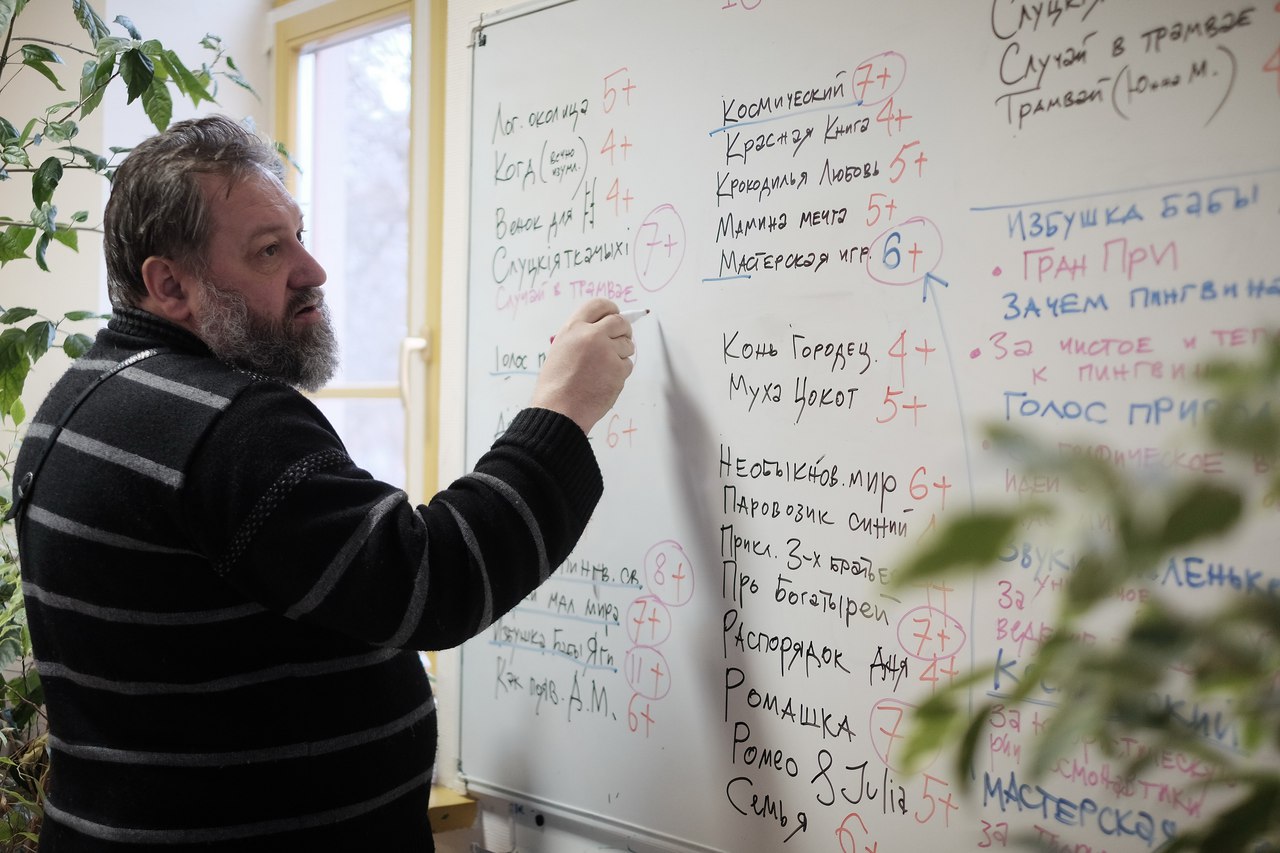 Лог. околица 5+
Когд (вечно изумл.) 4+
Венок для 4+
Слуцкія ткачыхі 7+
Случай в трамвае
Голос п
6+
нгв. св. 8+
мал мира 7+
Избушка Бабы Яги 11+
Как появ. Д.М. 6+
Космический 7+
Красная Книга 4+
Крокодилья Любовь 5+
Мамина мечта 5+
Мастерская игр. 6+
Конь Городец. 4+
Муха Цокот 5+
Необыкнов. мир 6+
Паровозик синий
Прикл. 3-х братье
Про Богатырей 7+
Распорядок Дня 4+
Ромашка 7
Ромео & Julia 5+
Семья 6+
Слуцкія
Случай в трамвае
Трамвай (Юнна М.)
Избушка Бабы
• Гран При
Зачем пингвина
• За чистое и теп
к пингви
Голос природ
идеи
Звуки ленько
За ун
веде
К ский
За к
рии космонавтики
Мастерская
за